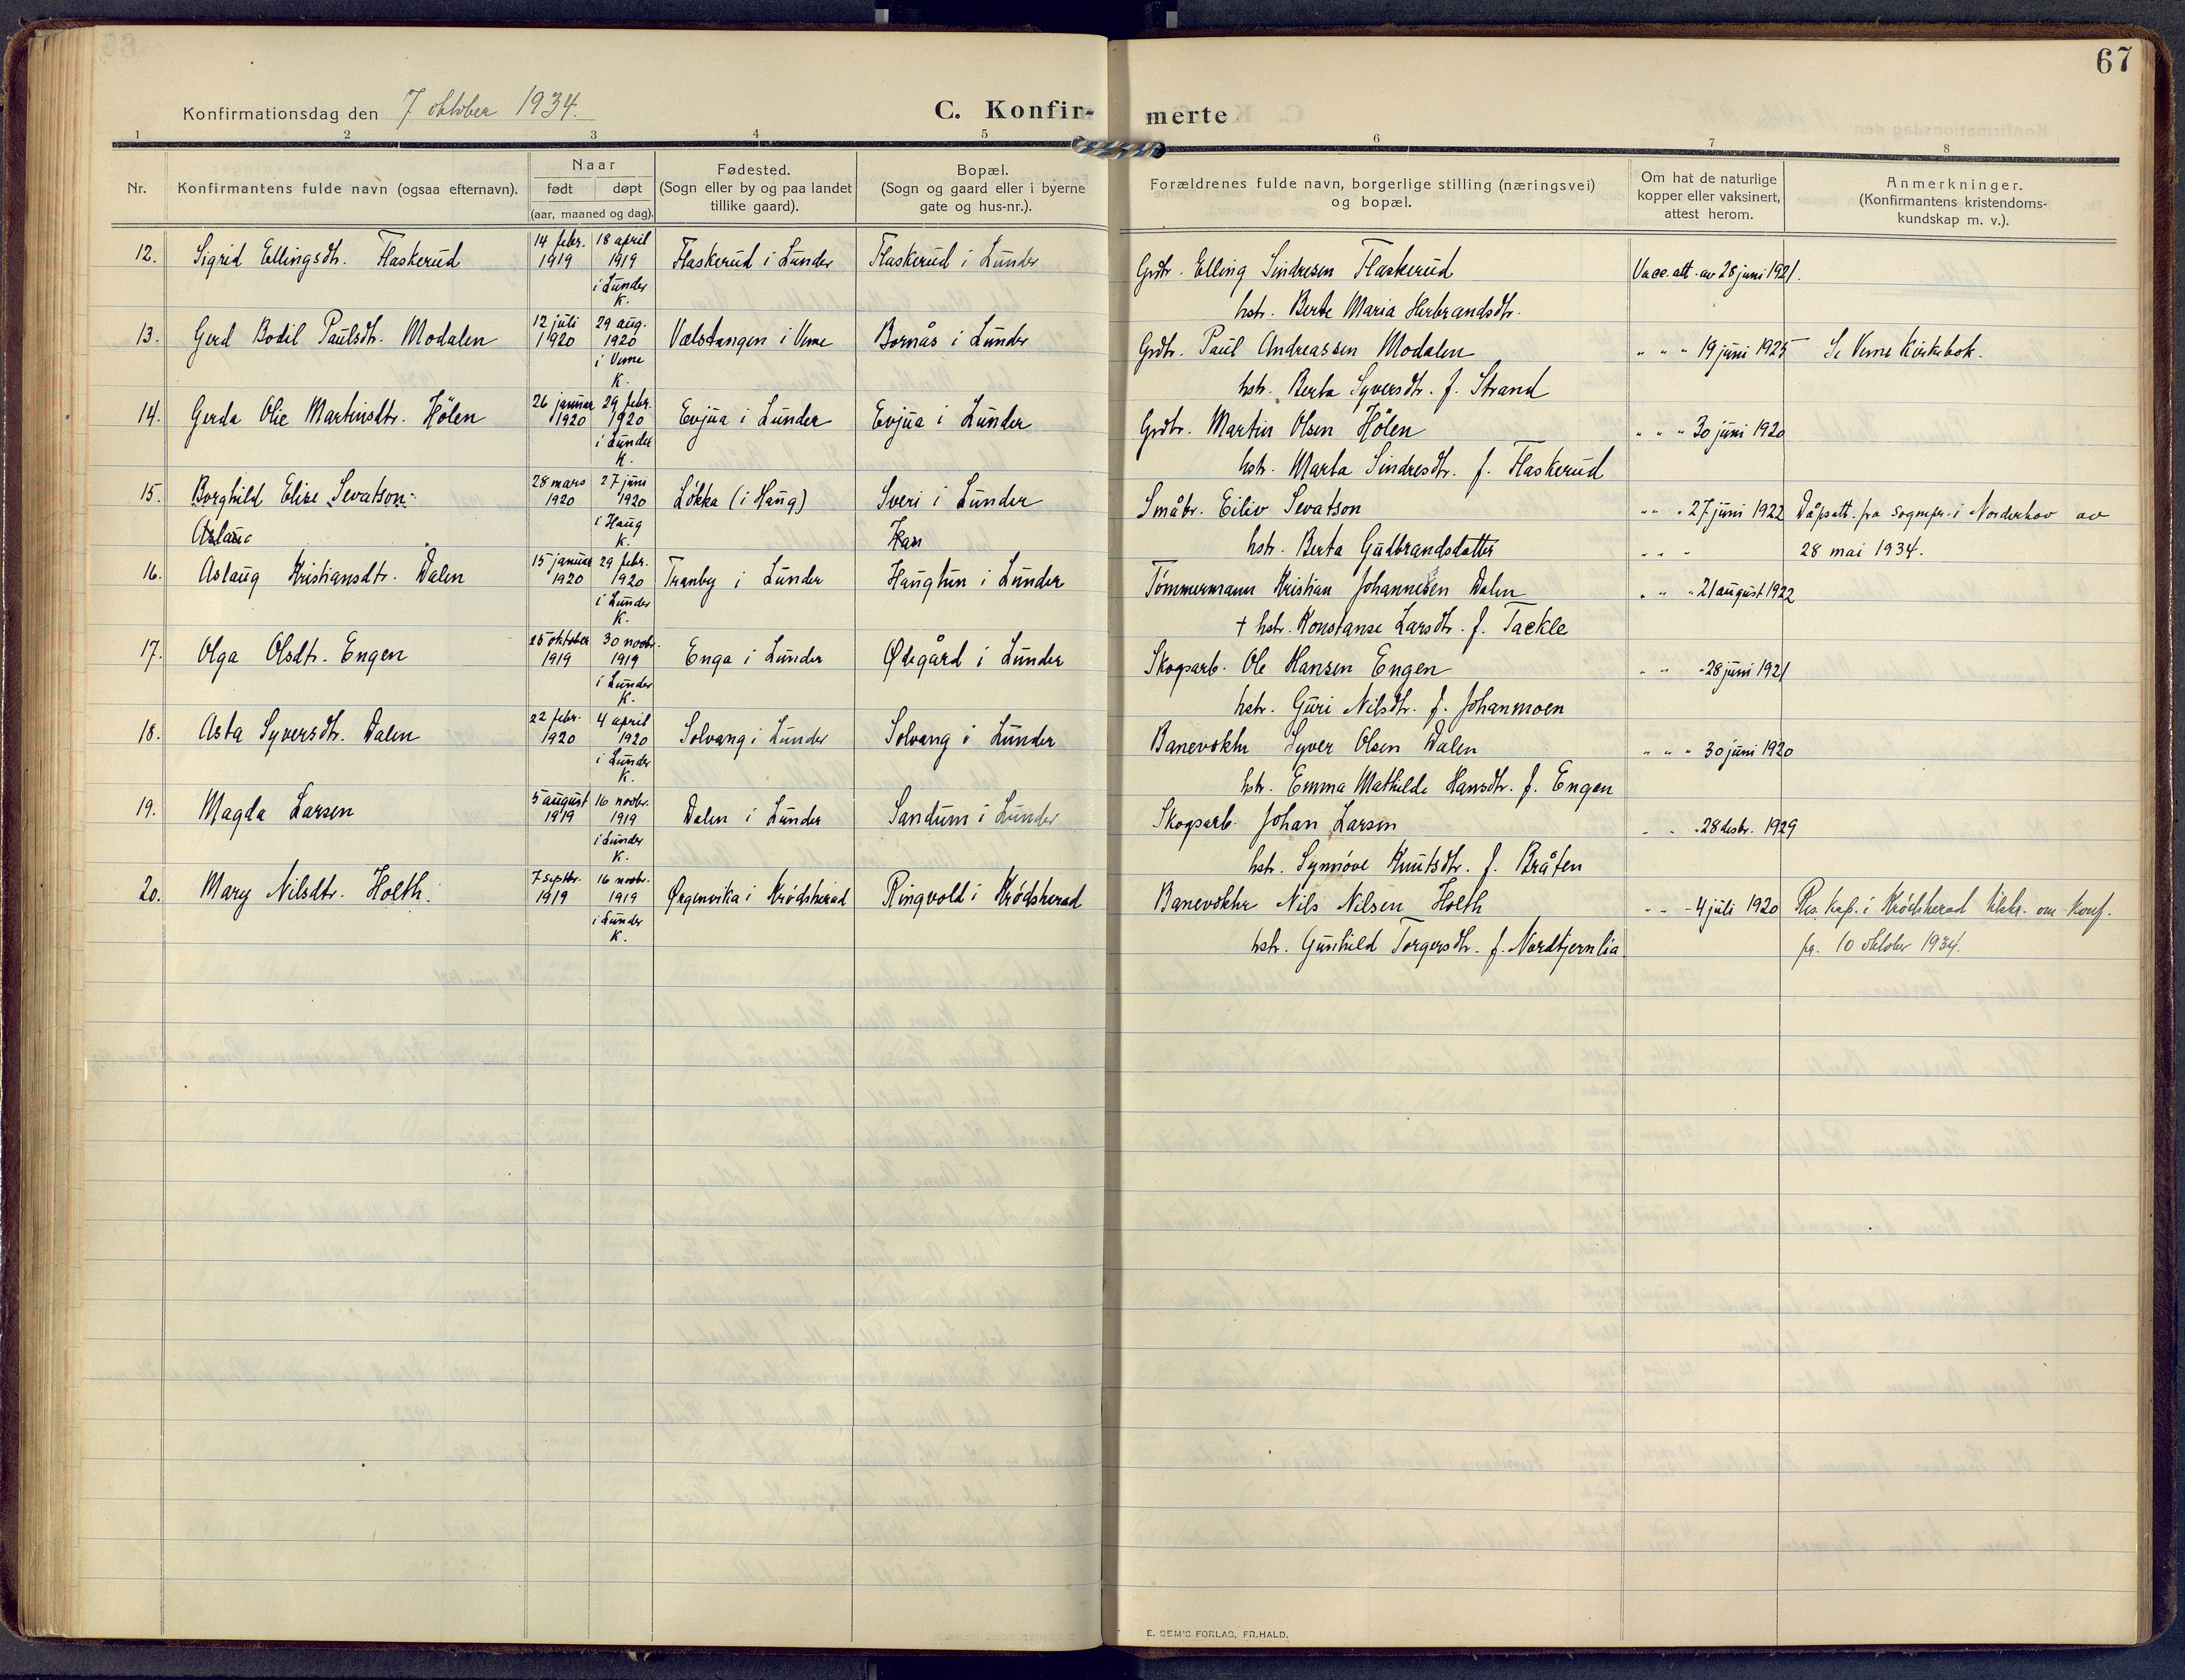 67
Konfirmationsdag den 7 oktober 1934.
C. Konfir-
merte
1 2 3 4 5 6 7 8
Nr.
Konfirmantens fulde navn (ogsaa efternavn).
Naar
født
døpt
(aar, maaned og dag).
Fødested.
(Sogn eller by og paa landet
tillike gaard).
Bopæl.
(Sogn og gaard eller i byerne
gate og hus-nr.).
Forældrenes fulde navn, borgerlige stilling (næringsvei)
og bopæl.
Om hat de naturlige
kopper eller vaksinert,
attest herom.
Anmerkninger.
(Konfirmantens kristendoms-
kundskap m. v.).
12. Sigrid Ellingsdtr. Flaskerud
14 febr.
1919
18 april
1919
i Lunder
K.
Flaskerud i Lunder
Flaskerud i Lunder
Grdbr. Elling Sindresen Flaskerud
hstr. Berte Maria Herbrandsdtr.
Vacc. att. av 28 juni 1921.
13. Gerd Bodil Paulsdtr. Modalen
12 juli
1920
29 aug.
1920
i Veme
K.
Vælstangen i Veme
Bornås i Lunder
Grdbr. Paul Andreassen Modalen
hstr. Berta Syversdtr. f. Strand
" " " 19 juni 1925
Se Veme Kirkebok.
14. Gerda Olie Martinsdtr. Hölen
26 januar
1920
29 febr.
1920
i Lunder
K.
Evjua i Lunder
Evjua i Lunder
Grdbr. Martin Olsen Hölen
hstr. Marta Sindresdtr. f. Flaskerud
" " " 30 juni 1920
15. Borghild Elise Sevatson
28 mars
1920
27 juni
1920
i Haug
K.
Løkka (i Haug)
Sveri i Lunder
Småbr. Eiliv Sevatson
hstr. Berta Gudbrandsdatter
" " " 27 juni 1922
Dåpsatt. fra sognepr. i Norderhov av
28 mai 1934.
16. Aslaug Kristiansdtr. Dalen
15 januar
1920
29 febr.
1920
i Lunder
K.
Tranby i Lunder
Haugtun i Lunder
Tømmermann Kristian Johannesen Dalen
† hstr. Konstanse Larsdtr. f. Tackle
" " " 21 august 1922
17. Olga Olsdtr. Engen
25 oktober
1919
30 novbr.
1919
i Lunder
K.
Enga i Lunder
Ødegård i Lunder
Skogsarb. Ole Hansen Engen
hstr. Guri Nilsdtr. f. Johanmoen
" " " 28 juni 1921
18. Asta Syversdtr. Dalen
22 febr.
1920
4 april
1920
i Lunder
K.
Solvang i Lunder
Solvang i Lunder
Banevokter Syver Olsen Dalen
hstr. Emma Mathilde Hansdtr. f. Engen
" " " 30 juni 1920
19. Magda Larsen
5 august
1919
16 novbr.
1919
i Lunder
K.
Dalen i Lunder
Sandum i Lunder
Skogsarb. Johan Larsen
hstr. Synnøve Knutsdtr. f. Bråten
" " " 28 desbr. 1929
20. Mary Nilsdtr. Holth.
7 septbr.
1919
16 novbr.
1919
i Lunder
K.
Ørgenvika i Krødsherad
Ringvold i Krødsherad
Banevokter Nils Nilsen Holth
hstr. Gunhild Torgersdtr. f. Nordtjernlia
" " " 4 juli 1920
Res. kap. i Krødsherad tilskr. om konf.
pr. 10 oktober 1934.
E. SEM'S FORLAG, FR.HALD.